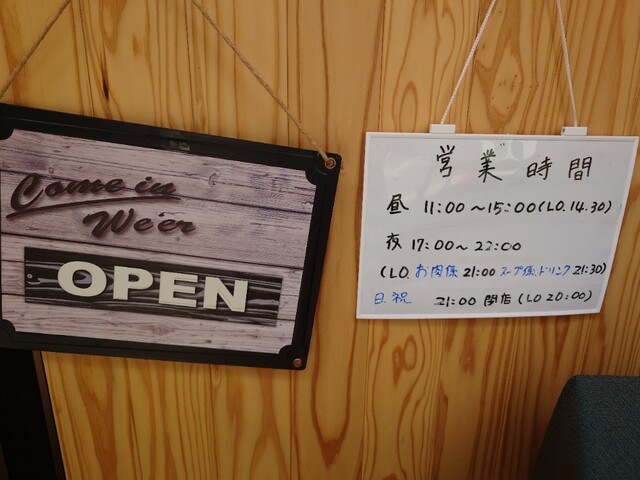 Come in
We'er
OPEN
営業時間
昼 11:00～15:00(LO.14.30)
夜 17:00～22:00
(LO お肉係 21:00 スープ係、ドリンク 21:30)
日.祝 21:00 閉店 (LO 20:00)